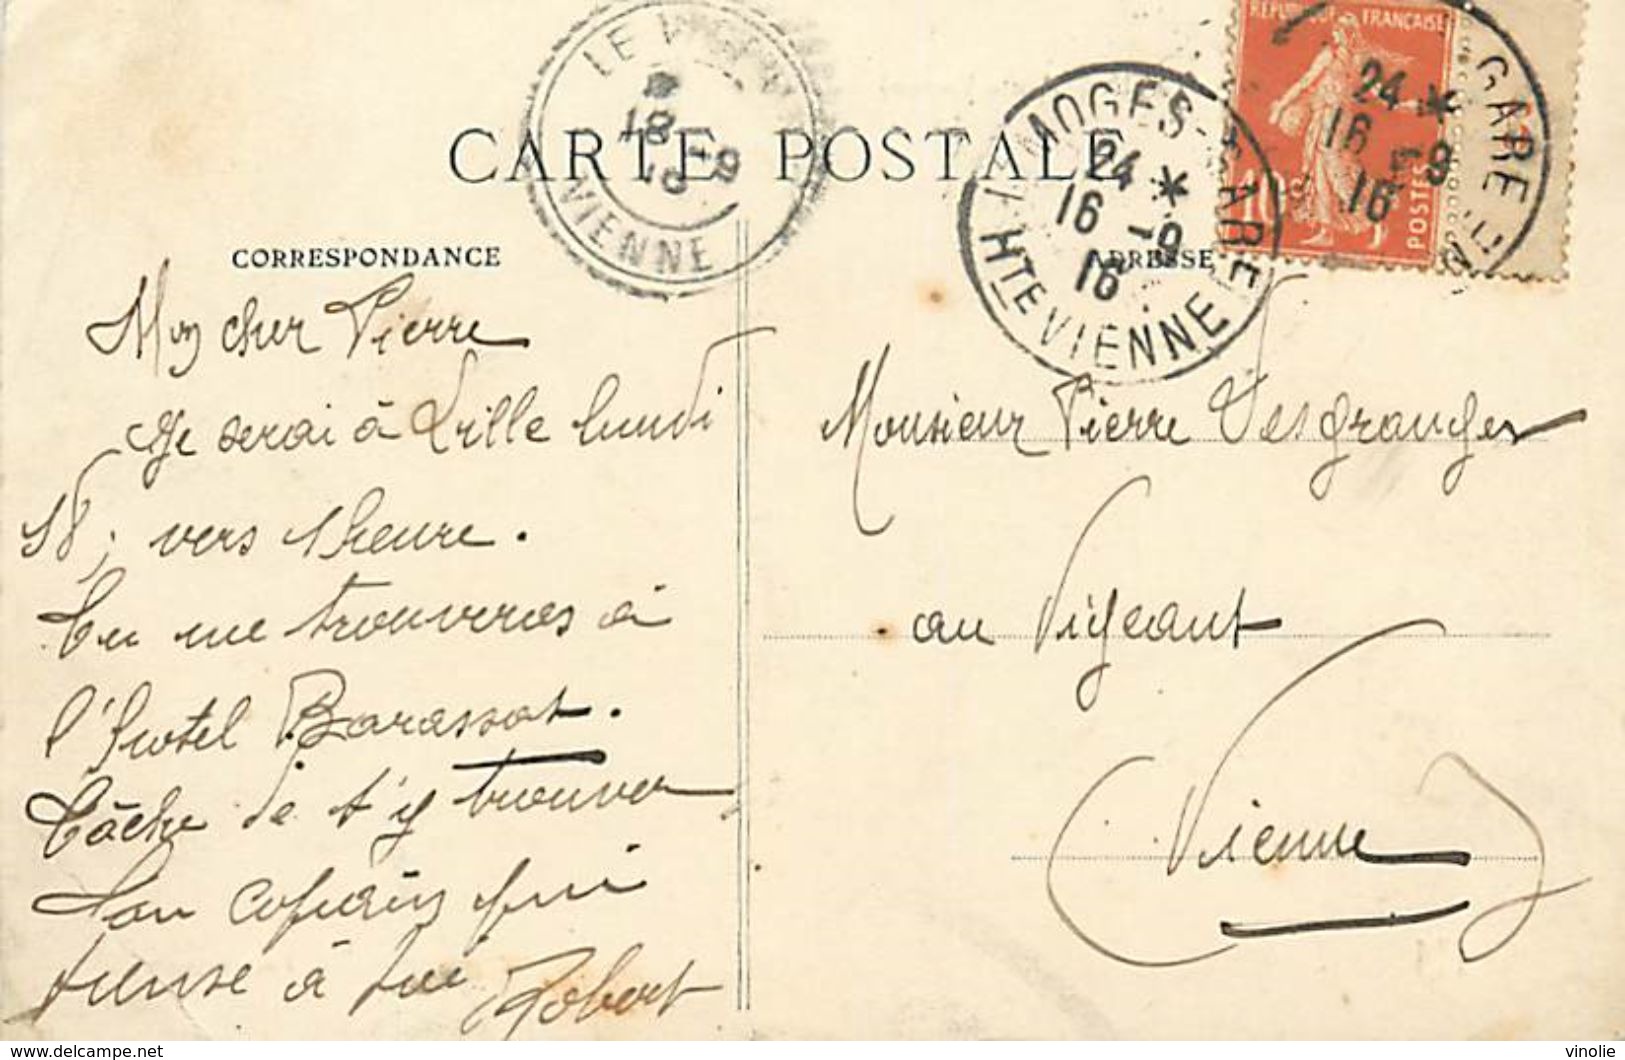 CARTE POSTALE
CORRESPONDANCE
ADRESSE
RÉPUBLIQUE FRANÇAISE
10c
POSTES
LE VIGEANT
18 -9
16
VIENNE
LIMOGES-GARE
24 *
16 -9
16
Hte VIENNE
GARE
24 *
16 -9
16
Mon cher Pierre
Je serai à Lille lundi
18, vers 1 heure.
Tu me trouveras à
l'hotel Barassat.
Tâche de t'y trouver
Ton copain qui
pense à toi Robert
Monsieur Pierre Desgranges
au Vigeant
(Vienne)
delcampe.net
vinolie